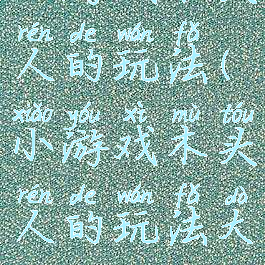 rén de wán fǎ
人的玩法(
xiǎo yóu xì mù tóu
小游戏木头
rén de wán fǎ dà
人的玩法大